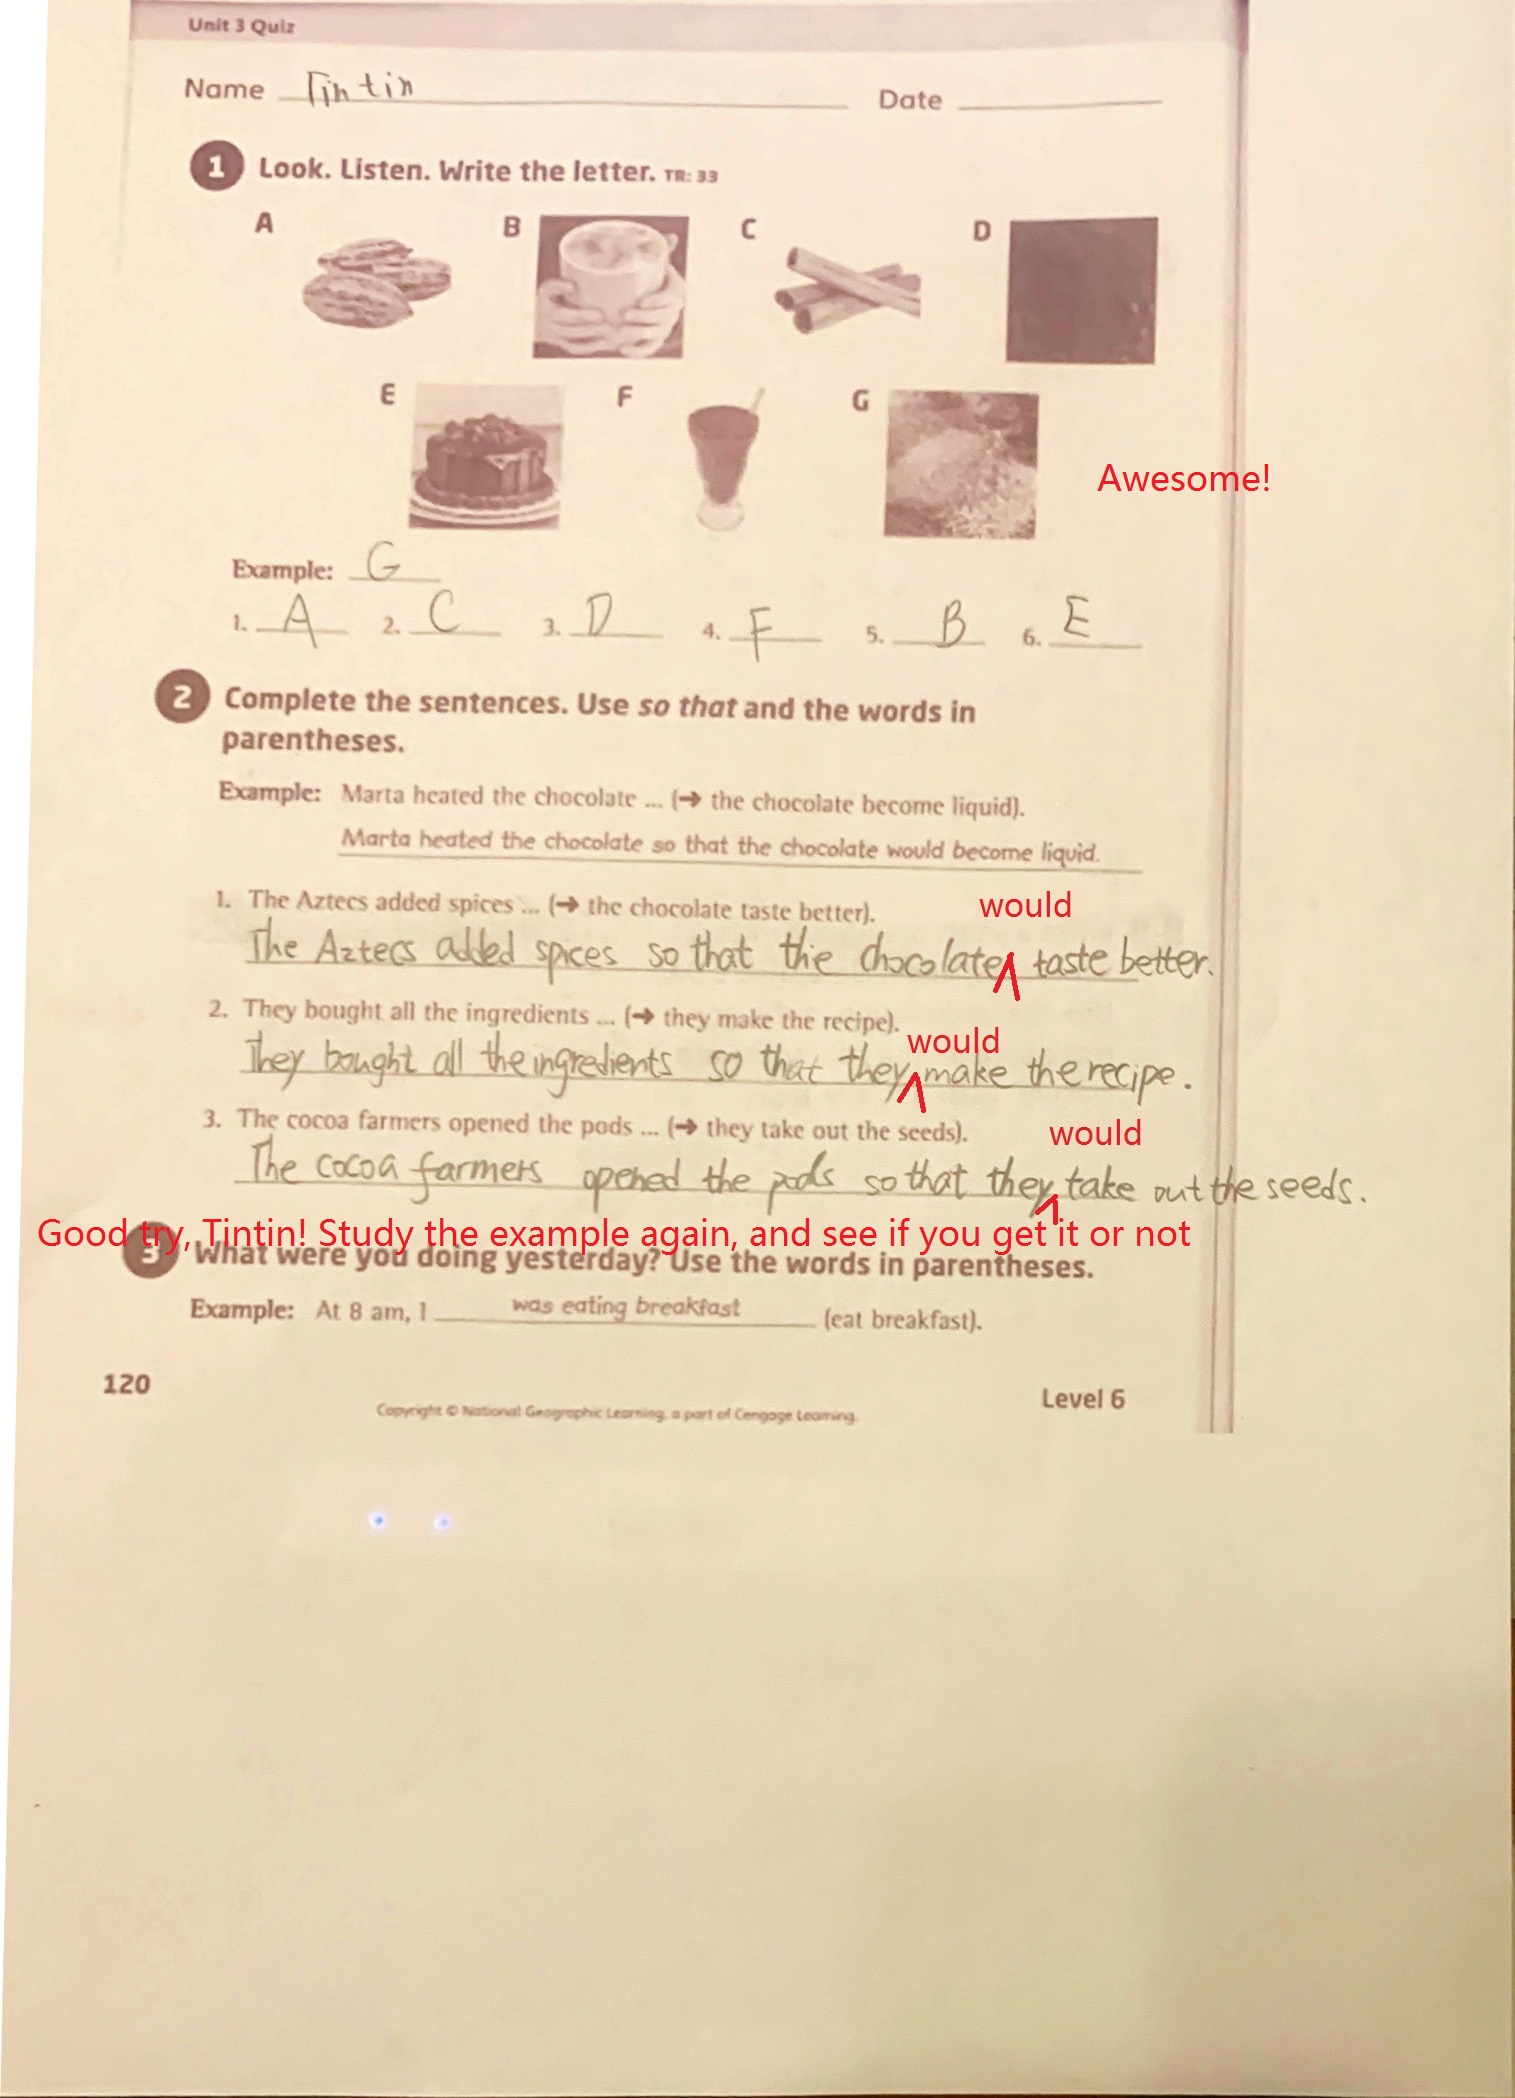 Unit 3 Quiz
Name Tintin Date
1 Look. Listen. Write the letter. TR: 33
A B C D
E F G
Awesome!
Example: G
1. A 2. C 3. D 4. F 5. B 6. E
2 Complete the sentences. Use so that and the words in
parentheses.
Example: Marta heated the chocolate ... (→ the chocolate become liquid).
Marta heated the chocolate so that the chocolate would become liquid.
1. The Aztecs added spices ... (→ the chocolate taste better).
would
The Aztecs added spices so that the chocolate taste better.
2. They bought all the ingredients ... (→ they make the recipe).
would
They bought all the ingredients so that they make the recipe.
3. The cocoa farmers opened the pods ... (→ they take out the seeds).
would
The cocoa farmers opened the pods so that they take out the seeds.
Good try, Tintin! Study the example again, and see if you get it or not
3 What were you doing yesterday? Use the words in parentheses.
Example: At 8 am, I was eating breakfast (eat breakfast).
120
Level 6
Copyright © National Geographic Learning, a part of Cengage Learning.